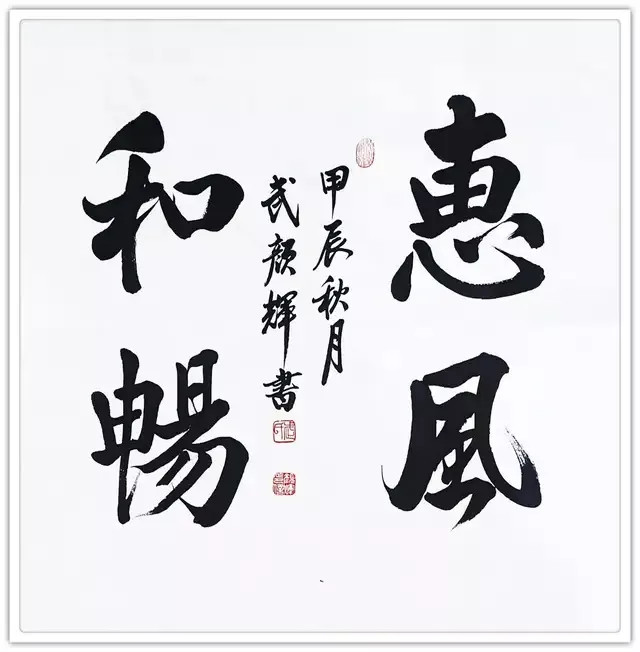 惠風
和暢
甲辰秋月
武顏輝書